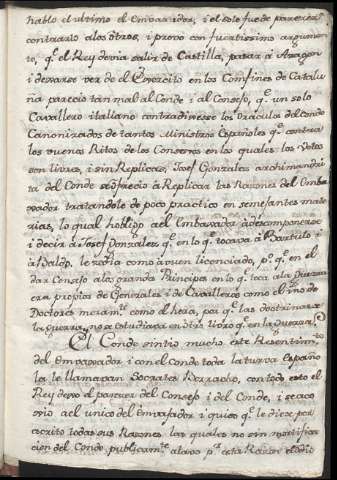 hablo el ultimo el Embaxador, i el solo fue de parecer
contrario a los otros, i provo con fuertissimo argumen-
to, q.e el Rey devia salir de Castilla, pasar a Aragon
i dexarse ver de el Exercito en los Confines de Catalu-
ña parecio tan mal al Conde i al Consejo, q.e un solo
Cavallero italiano contradixesse los Oraculos del Conde
Canonizados de tantos Ministros Españoles q.e contra
los buenos Ritos de los Consexos en los quales los votos
son livres, i sin Replicas, Josef Gonzales archimandri-
ta del Conde se ofrecio à Replicar las Razones del Emba
xador tratandole de poco practico en semejantes mate
rias, lo qual hobligo a el Embaxador à descomponerse
i decir à Josef Gonzalez q.e en lo q.e tocava à Bartulo i
à Baldo, le cedia como à buen licenciado, p.o q.e en el
dar Consejo a los grandes Principes en lo q.e toca a la Guerra
era propios de Generales i de Cavalleros como el i no de
Doctores meram.te como el hera, por q.e las doctrinas de
la Guerra, no se estudiavan en otro libro q.e en la Guerra.
El Conde sintio mucho este Resentim.to
del Embaxador i con el Conde toda la turva Españo
la le llamavan Socrates Borracho, con todo esto el
Rey dexo el parecer del Consejo i del Conde, i se aco
modo al unico del Embaxador i quiso q.e le diese por
escrito todas sus Razones las quales no sin mortifica
cion del Conde, publicam.te alavo p.r esta Razon el odio